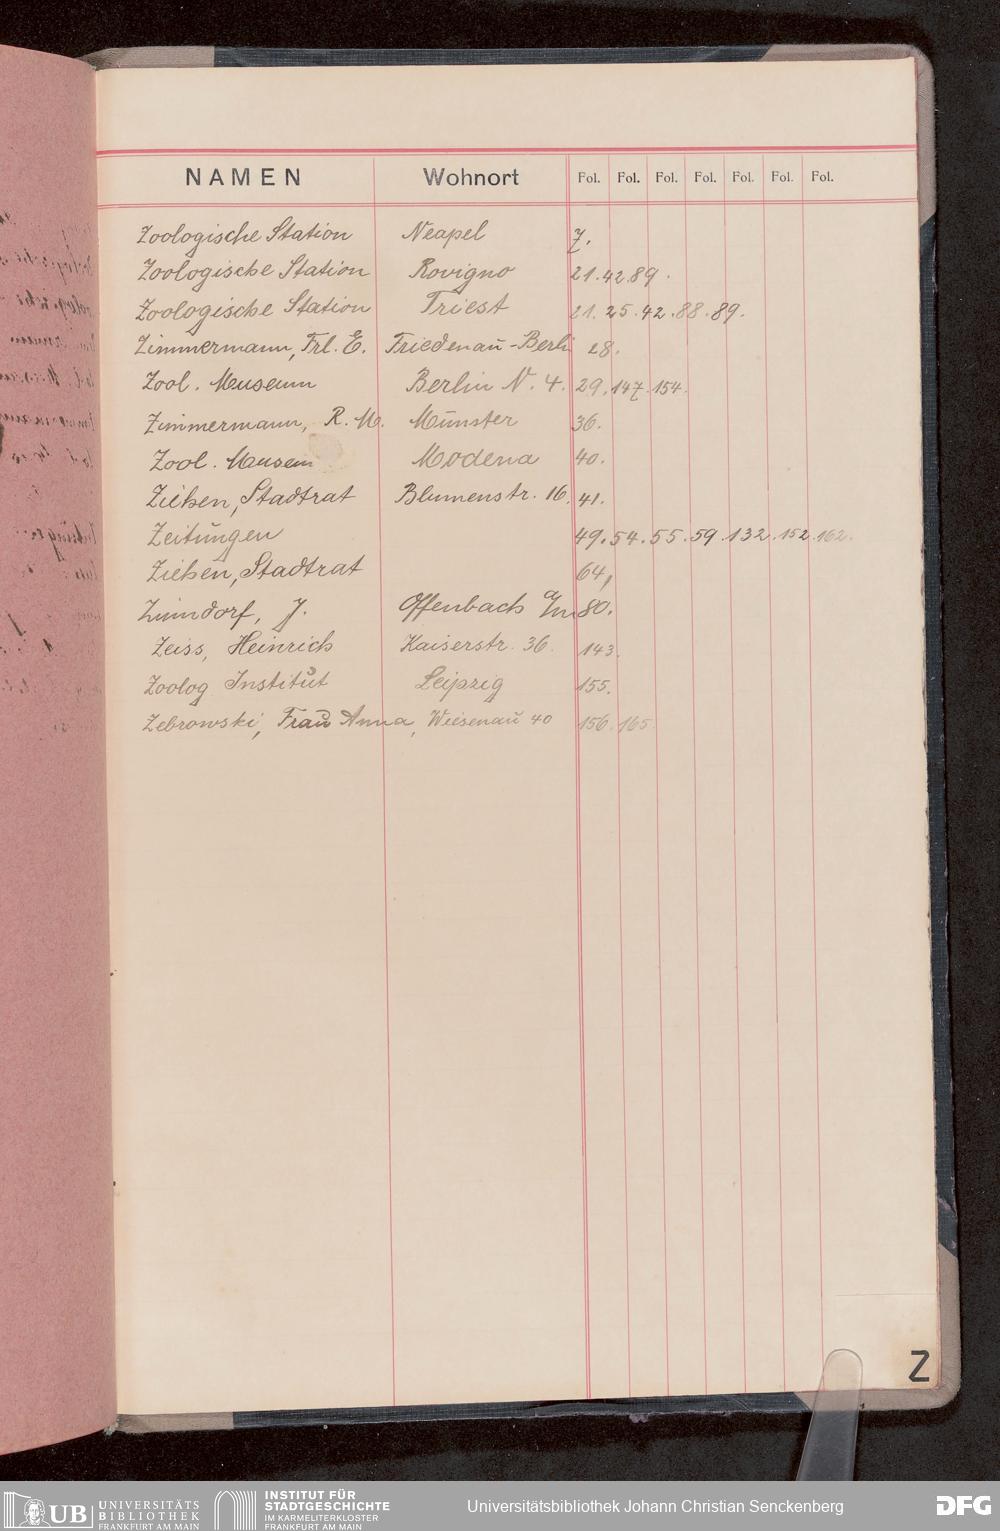 NAMEN Wohnort Fol. Fol. Fol. Fol. Fol. Fol. Fol.
Zoologische Station Neapel 7.
Zoologische Station Rovigno 21. 42. 89.
Zoologische Station Triest 21. 25. 42. 88. 89.
Zimmermann, Frl. E. Friedenau-Berli 28.
Zool. Museum Berlin N. 4. 29. 147. 154.
Zimmermann, R. M. Münster 36.
Zool. Museum Modena 40.
Ziehen, Stadtrat Blumenstr. 16. 41.
Zeitungen 49. 54. 55. 59. 132. 152. 162.
Ziehen, Stadtrat 64,
J. Offenbach a/m 80.
Zeiss, Heinrich Kaiserstr. 36. 143.
Zoolog Institut Leipzig 155.
Zebrowski, Frau Anna, Wiesenau 40 156. 165.
Z
UB UNIVERSITÄTS
BIBLIOTHEK
FRANKFURT AM MAIN
INSTITUT FÜR
STADTGESCHICHTE
IM KARMELITERKLOSTER
FRANKFURT AM MAIN
Universitätsbibliothek Johann Christian Senckenberg
DFG